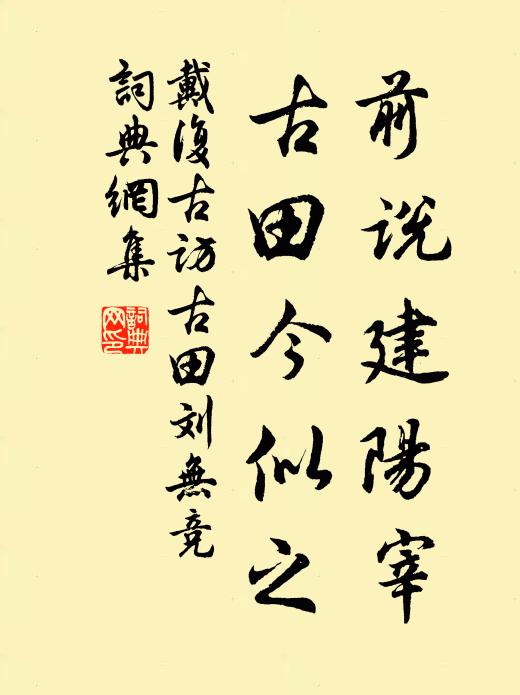 前说建陽宰
古田今似之
戴復古访古田刘無竞
詞典網集
詞典
网印